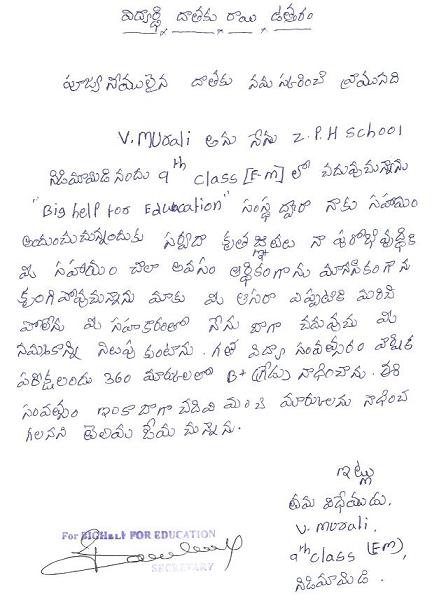 విద్యార్థి దాతకు రాయు ఉత్తరం
పూజ్యనీయులైన దాతకు నమస్కరించి వ్రాయునది
V. MURali అను నేను Z.P.H SCHOOL
నిడిమామిడి నందు 9th Class [E-m] లో చదువుచున్నాను
"Big help for Education" సంస్థ ద్వారా నాకు సహాయం
అందించుచున్నందుకు సర్వదా కృతజ్ఞతలు నా పురోభివృద్ధికి
మీ సహాయం చాలా అవసరం ఆర్థికంగాను మానసికంగాను
కృంగిపోవుచున్నాను మాకు మీ ఆసరా ఎప్పటికి మరిచి
పోలేను మీ సహకారంతో నేను బాగా చదువుచు మీ
నమ్మకాన్ని నిలుపు కుంటాను. గత విద్యా సంవత్సరం వార్షిక
పరీక్షలందు 360 మార్కులతో B+ గ్రేడు సాధించాను. ఈ
సంవత్సరం ఇంకా బాగా చదివి మంచి మార్కులను సాధించ
గలనని తెలియ జేయ చున్నాను.
ఇట్లు
తమ విధేయుడు,
V. MURali,
9th class (Em),
నిడిమామిడి.
For BIGHELP FOR EDUCATION
SECRETARY